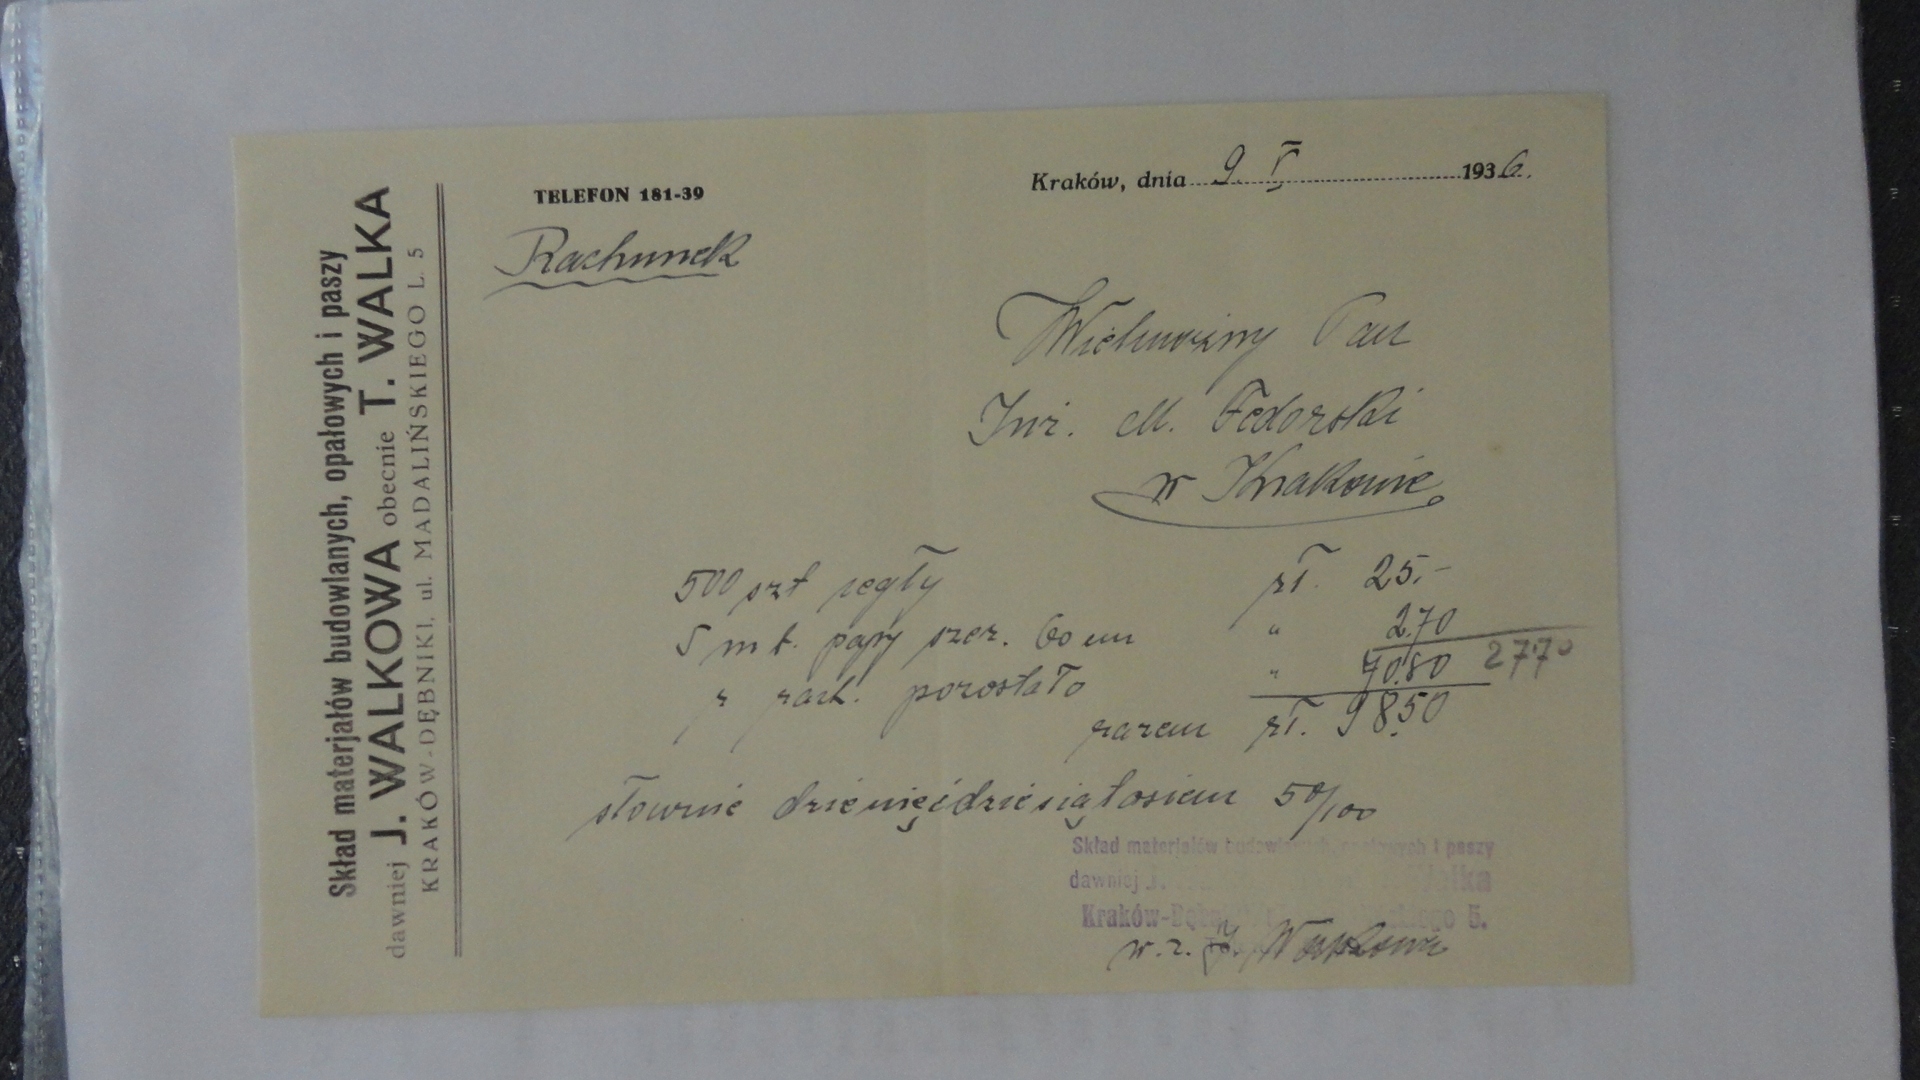 Skład materjałów budowlanych, opałowych i paszy
dawniej J. WALKOWA obecnie T. WALKA
KRAKÓW-DĘBNIKI, ul. MADALIŃSKIEGO L. 5
TELEFON 181-39
Kraków, dnia 9. V 1936.
Rachunek
Wielmożny Pan
Inż. M. Fedorski
w Krakowie
500 szt cegły zł. 25.-
5 mb. papy szer. 60 cm " 2.70
27.70
z rach. pozostało " 70.80
razem zł. 98.50
słownie dziewięćdziesiąt osiem 50/100
Skład materjałów budowlanych, opałowych i paszy
dawniej J. Walka
Kraków-Dębniki 5.
w. z. Walkowa